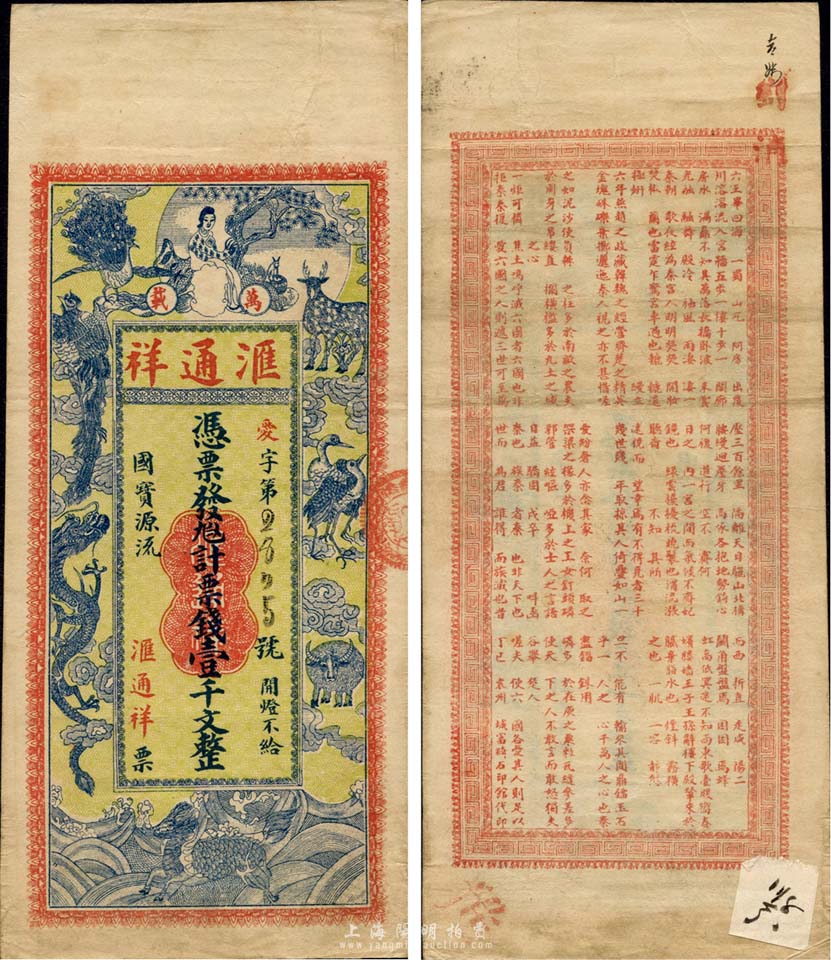 萬載
滙通祥
愛字第2675號 開燈不給
憑票發兌計票錢壹千文整
國寳源流
滙通祥票
六王畢四海一蜀山兀阿房出覆壓三百餘里隔離天日驪山北構而西折直走咸陽二
川溶溶流入宮牆五步一樓十步一閣廊腰縵迴簷牙高啄各抱地勢鈎心鬥角盤盤焉囷囷焉蜂
房水渦矗不知其幾萬落長橋卧波未雲何復道行空不霽何虹高低冥迷不知西東歌臺暖響春
光融融舞殿冷袖風雨凄凄一日之內一宮之間而氣候不齊妃嬪媵嬙王子王孫辭樓下殿輦來於
秦朝歌夜絃為秦宮人明明熒熒開妝鏡也綠雲擾擾梳曉鬟也渭流漲膩棄脂水也煙斜霧橫
焚椒蘭也雷霆乍驚宮車過也轆轆遠聽杳不知其所之也一肌一容盡態
極妍縵立遠視而望幸焉有不得見者三十
六年燕趙之收藏韓魏之經營齊楚之精英幾世幾年取掠其人倚疊如山一旦不能有輸來其間鼎鐺玉石
金塊珠礫棄擲邐迤秦人視之亦不甚惜嗟乎一人之心千萬人之心也秦
愛紛奢人亦念其家奈何取之盡錙銖用
之如泥沙使負棟之柱多於南畝之農夫架梁之椽多於機上之工女釘頭磷磷多於在庾之粟粒瓦縫參差多
於周身之帛縷直欄橫檻多於九土之城郭管絃嘔啞多於士人之言語使天下之人不敢言而敢怒獨夫
之心日益驕固戍卒叫函谷舉楚人
一炬可憐焦土嗚呼滅六國者六國也非秦也族秦者秦也非天下也嗟夫使六國各愛其人則足以
拒秦秦復愛六國之人則遞三世可至萬世而為君誰得而族滅也昔丁巳袁州城富時石印館代印
上海陽明拍賣
www.yangmingauction.com